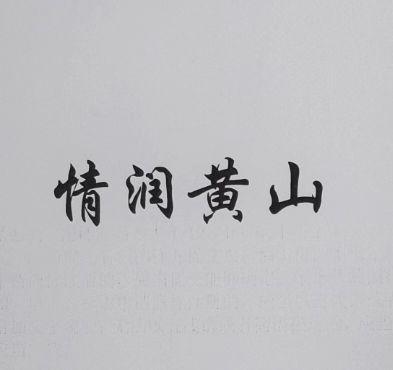 情润黄山